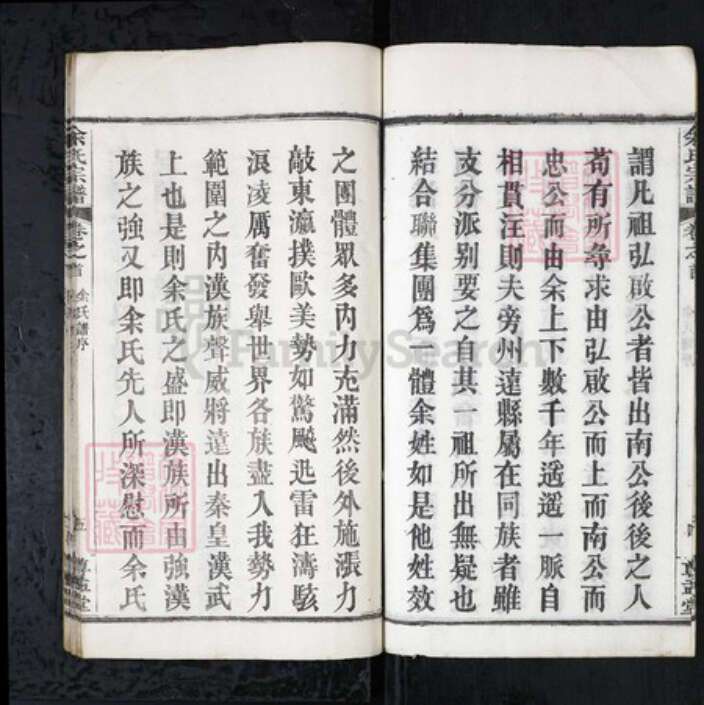 余氏宗譜
卷之首
謂凡祖弘啟公者皆出南公後後之人
苟有所尋求由弘啟公而上而南公而
忠公而由余上下數千年遥遥一脈自
相貫注則夫旁州達縣屬在同族者雖
支分派别要之自其一祖所出無疑也
結合聯集團爲一體余姓如是他姓效
之團體眾多内力充滿然後外施漲力
敲東瀛撲歐美勢如驚飈迅雷狂濤駭
浪凌厲奮發舉世界各族盡入我勢力
範圍之内漢族聲威將遠出秦皇漢武
上也是則余氏之盛即漢族所由強漢
族之強又即余氏先人所深慰而余氏
余氏宗譜
卷之首
余氏譜序
五
FamilySearch